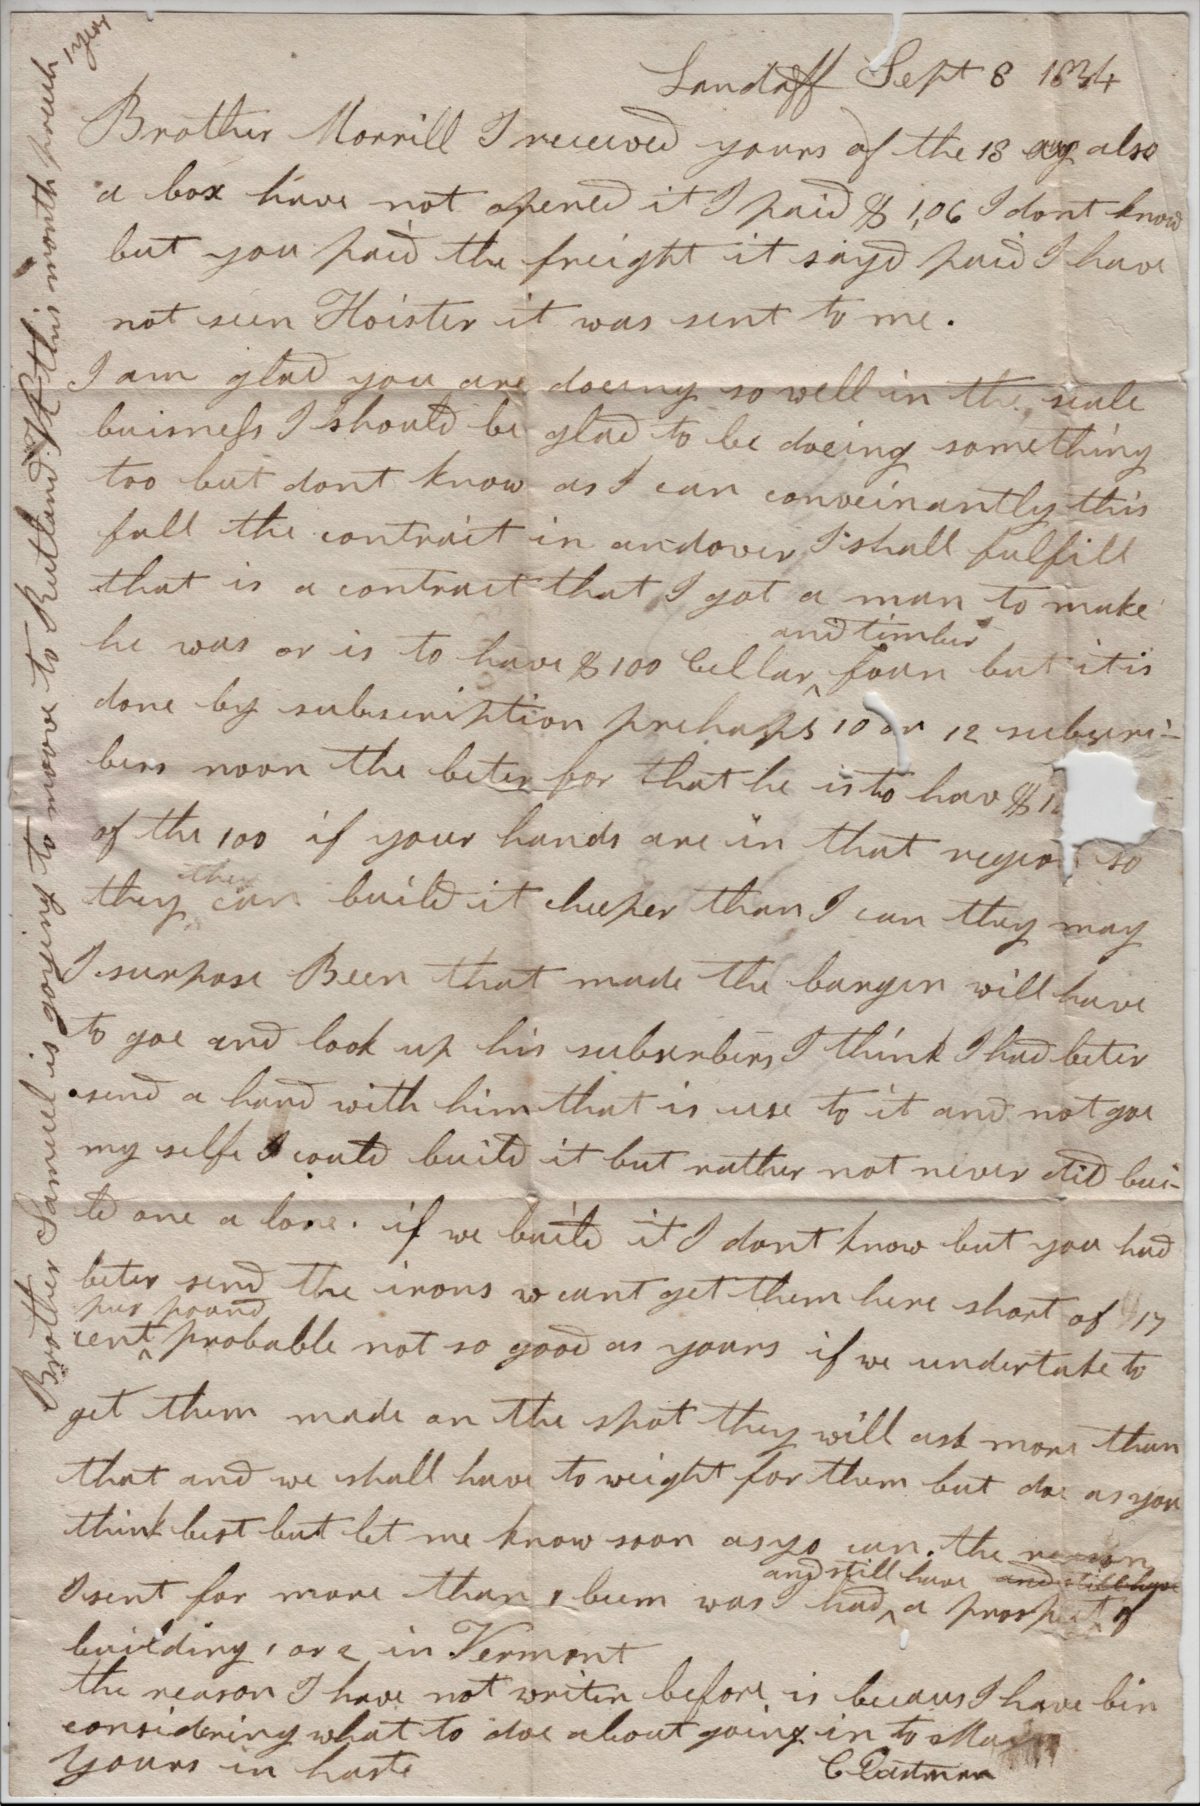 Landaff Sept 8 1834
Brother Morrill I received yours of the 18 aug also
a box have not opened it I paid $ 1,06 I dont know
but you paid the freight it sayd paid I have
not seen Hoister it was sent to me.
I am glad you are doeing so well in the scale
buisness I should be glad to be doeing something
too but dont know as I can conveinantly this
fall the contract in andover I shall fulfill
that is a contract that I got a man to make
and timber
he was or is to have $ 100 Cellar ^ foun but it is
done by subscription prehaps 10 or 12 subscri-
bers noon the beter for that he is to hav $ 1
of the 100 if your hands are in that region so
they
they can build it cheeper than I can they may
I surpose Been that made the bargen will have
to goe and look up his subscribers I think I had beter
send a hand with him that is use to it and not goe
my selfe I could build it but rather not never did bui-
ld one a lone. if we build it I dont know but you had
beter send the irons we cant get them here short of 17
pur pound
cent ^ probable not so good as yours if we undertake to
get them made on the spot they will ask more than
that and we shall have to weight for them but doe as you
think best but let me know soon as yo can. the reason
and still have and still have
I sent for more than 1 beem was I had ^ a prospect of
building 1 or 2 in Vermont
the reason I have not writen before is becaus I have bin
considering what to doe about going in to
yours in haste C Eastman
Brother Samuel is goeing to moove to Rutland Vt this month preach
1 year